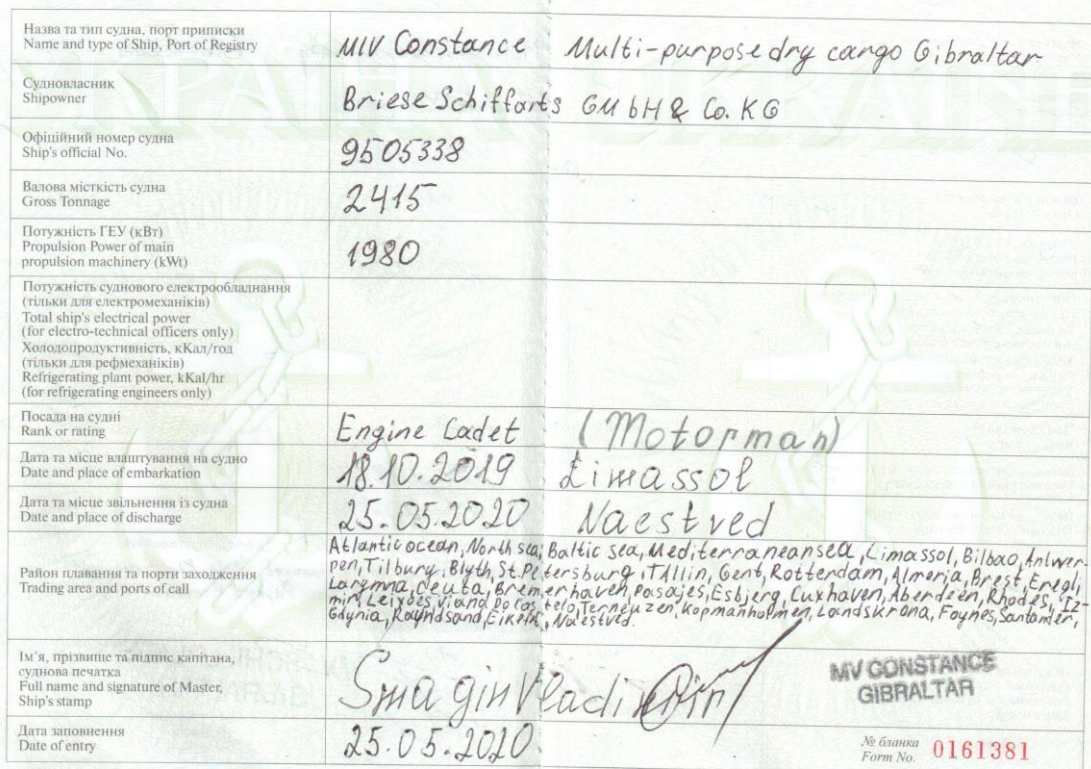 Назва та тип судна, порт приписки
Name and type of Ship, Port of Registry
M/V Constance Multi-purpose dry cargo Gibraltar
Судновласник
Shipowner
Briese Schiffarts GMbH & Co. KG
Офіційний номер судна
Ship's official No.
9505338
Валова місткість судна
Gross Tonnage
2415
Потужність ГЕУ (кВт)
Propulsion Power of main
propulsion machinery (kWt)
1980
Потужність суднового електрообладнання
(тільки для електромеханіків)
Total ship's electrical power
(for electro-technical officers only)
Холодопродуктивність, кКал/год
(тільки для рефмеханіків)
Refrigerating plant power, kKal/hr
(for refrigerating engineers only)
Посада на судні
Rank or rating
Engine Cadet (Motorman)
Дата та місце влаштування на судно
Date and place of embarkation
18.10.2019 Limassol
Дата та місце звільнення із судна
Date and place of discharge
25.05.2020 Naestved
Район плавання та порти заходження
Trading area and ports of call
Atlantic ocean, North sea, Baltic sea, Mediterranean sea, Limassol, Bilbao, Antwer-
pen, Tilbury, Blyth, St.Petersburg, Tallin, Gent, Rotterdam, Almeria, Brest, Eregl,
Larymna, Ceuta, Bremerhaven, Pasajes, Esbjerg, Cuxhaven, Aberdeen, Rhodes, Iz-
mir, Leixoes, Viana Do Castelo, Terneuzen, Kopmanholmen, Landskrona, Foynes, Santander,
Gdynia, Raundsand, Eikefet, Naestved.
Ім'я, прізвище та підпис капітана,
суднова печатка
Full name and signature of Master,
Ship's stamp
Smagin Vladimir
MV CONSTANCE
GIBRALTAR
Дата заповнення
Date of entry
25.05.2020
№ бланка
Form No. 0161381